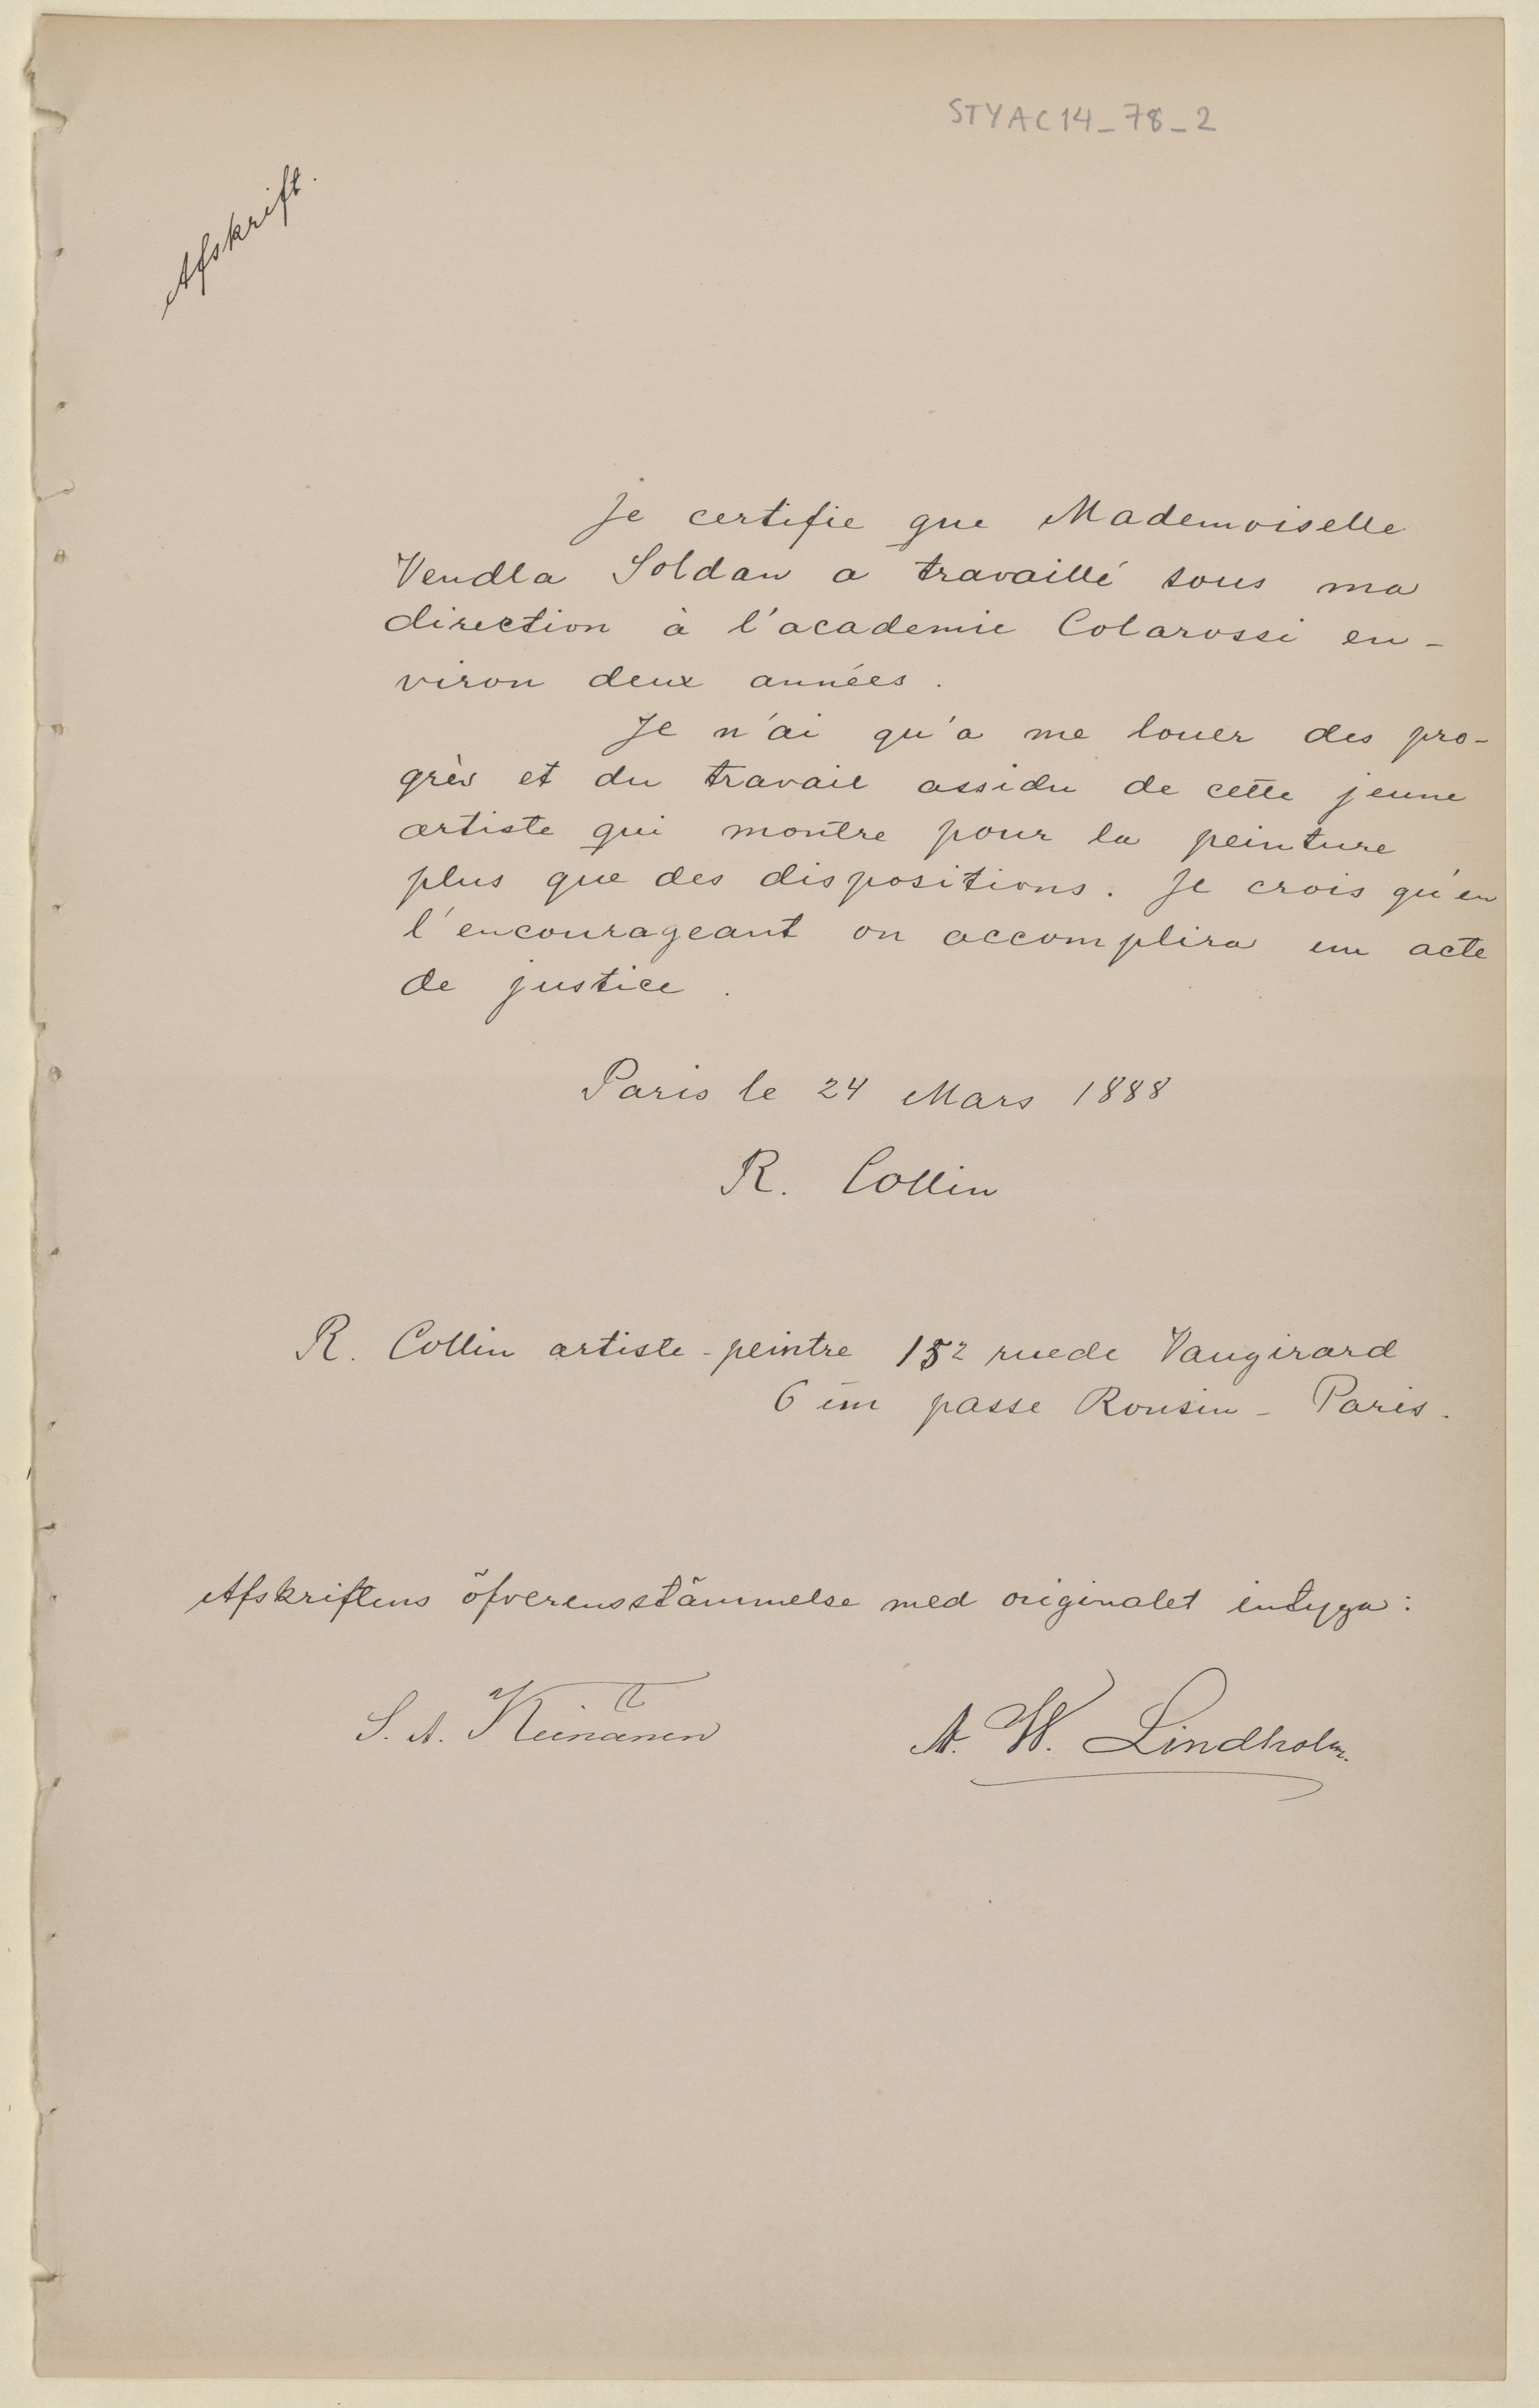 STYAC14_78_2
Afskrift.
Je certifie que Mademoiselle
Vendla Soldan a travaillé sous ma
direction à l'academie Colarossi en-
viron deux années.
Je n'ai qu'a me louer des pro-
grès et du travail assidu de cette jeune
artiste qui montre pour la peinture
plus que des dispositions. Je crois qu'en
l'encourageant on accomplira un acte
de justice.
Paris le 24 Mars 1888
R. Collin
R. Collin artiste-peintre 152 rue de Vaugirard
6 im passe Ronsin - Paris.
Afskriftens öfverensstämmelse med originalet intyga:
S. A. Keinänen
A. W. Lindholm.